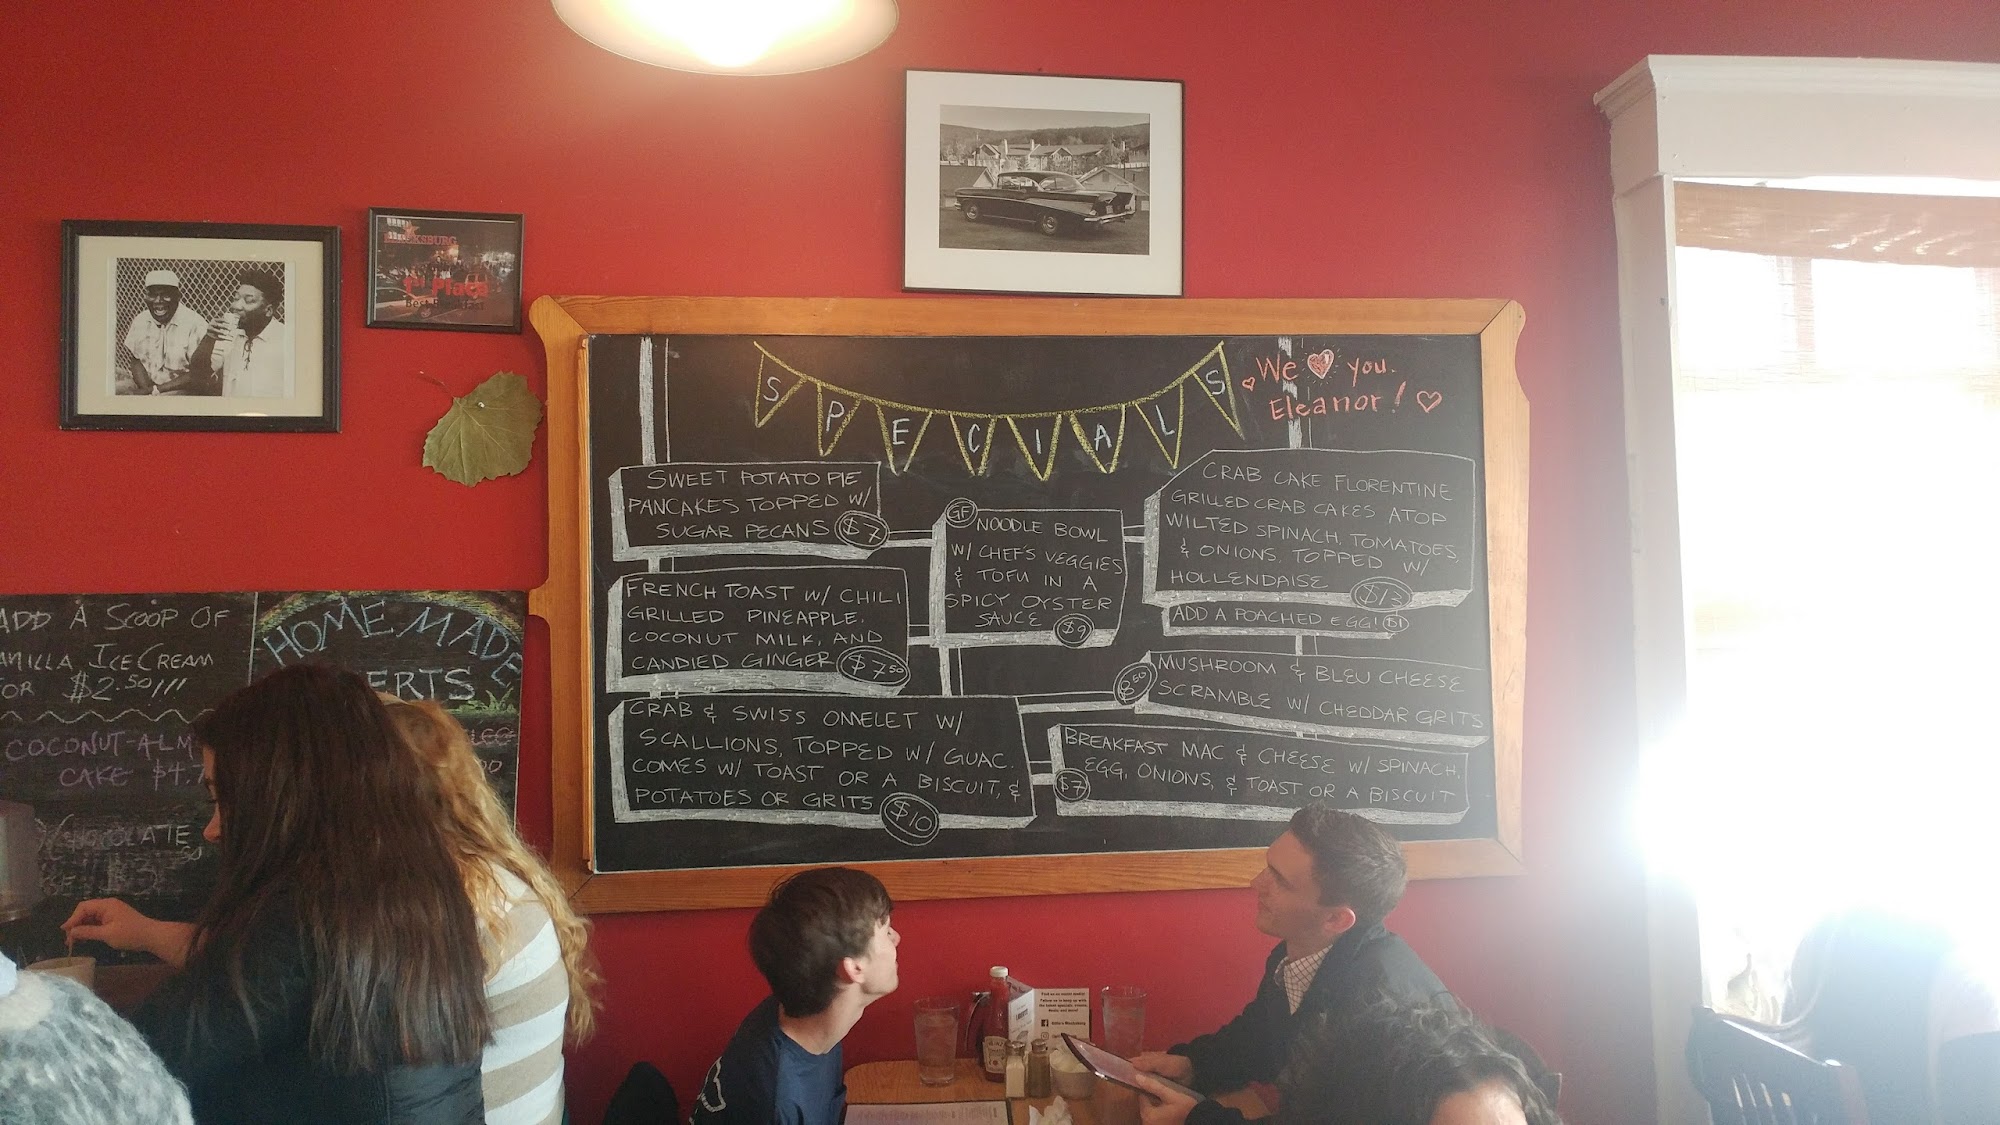 1st Place
SPECIALS
We ♥ you.
Eleanor!
SWEET POTATO PIE
PANCAKES TOPPED W/
SUGAR PECANS $7
FRENCH TOAST W/ CHILI
GRILLED PINEAPPLE,
COCONUT MILK, AND
CANDIED GINGER $7.50
CRAB & SWISS OMELET W/
SCALLIONS, TOPPED W/ GUAC.
COMES W/ TOAST OR A BISCUIT, &
POTATOES OR GRITS $10
GF NOODLE BOWL
W/ CHEF'S VEGGIES
& TOFU IN A
SPICY OYSTER
SAUCE $9
CRAB CAKE FLORENTINE
GRILLED CRAB CAKES ATOP
WILTED SPINACH, TOMATOES,
& ONIONS, TOPPED W/
HOLLENDAISE $13
ADD A POACHED EGG! $1
MUSHROOM & BLEU CHEESE
8.50 SCRAMBLE W/ CHEDDAR GRITS
BREAKFAST MAC & CHEESE W/ SPINACH,
EGG, ONIONS, & TOAST OR A BISCUIT
$7
ADD A SCOOP OF
ANILLA ICE CREAM
FOR $2.50!!!
COCONUT-ALM
CAKE $4.7
CHOCOLATE
HOMEMADE
ERTS